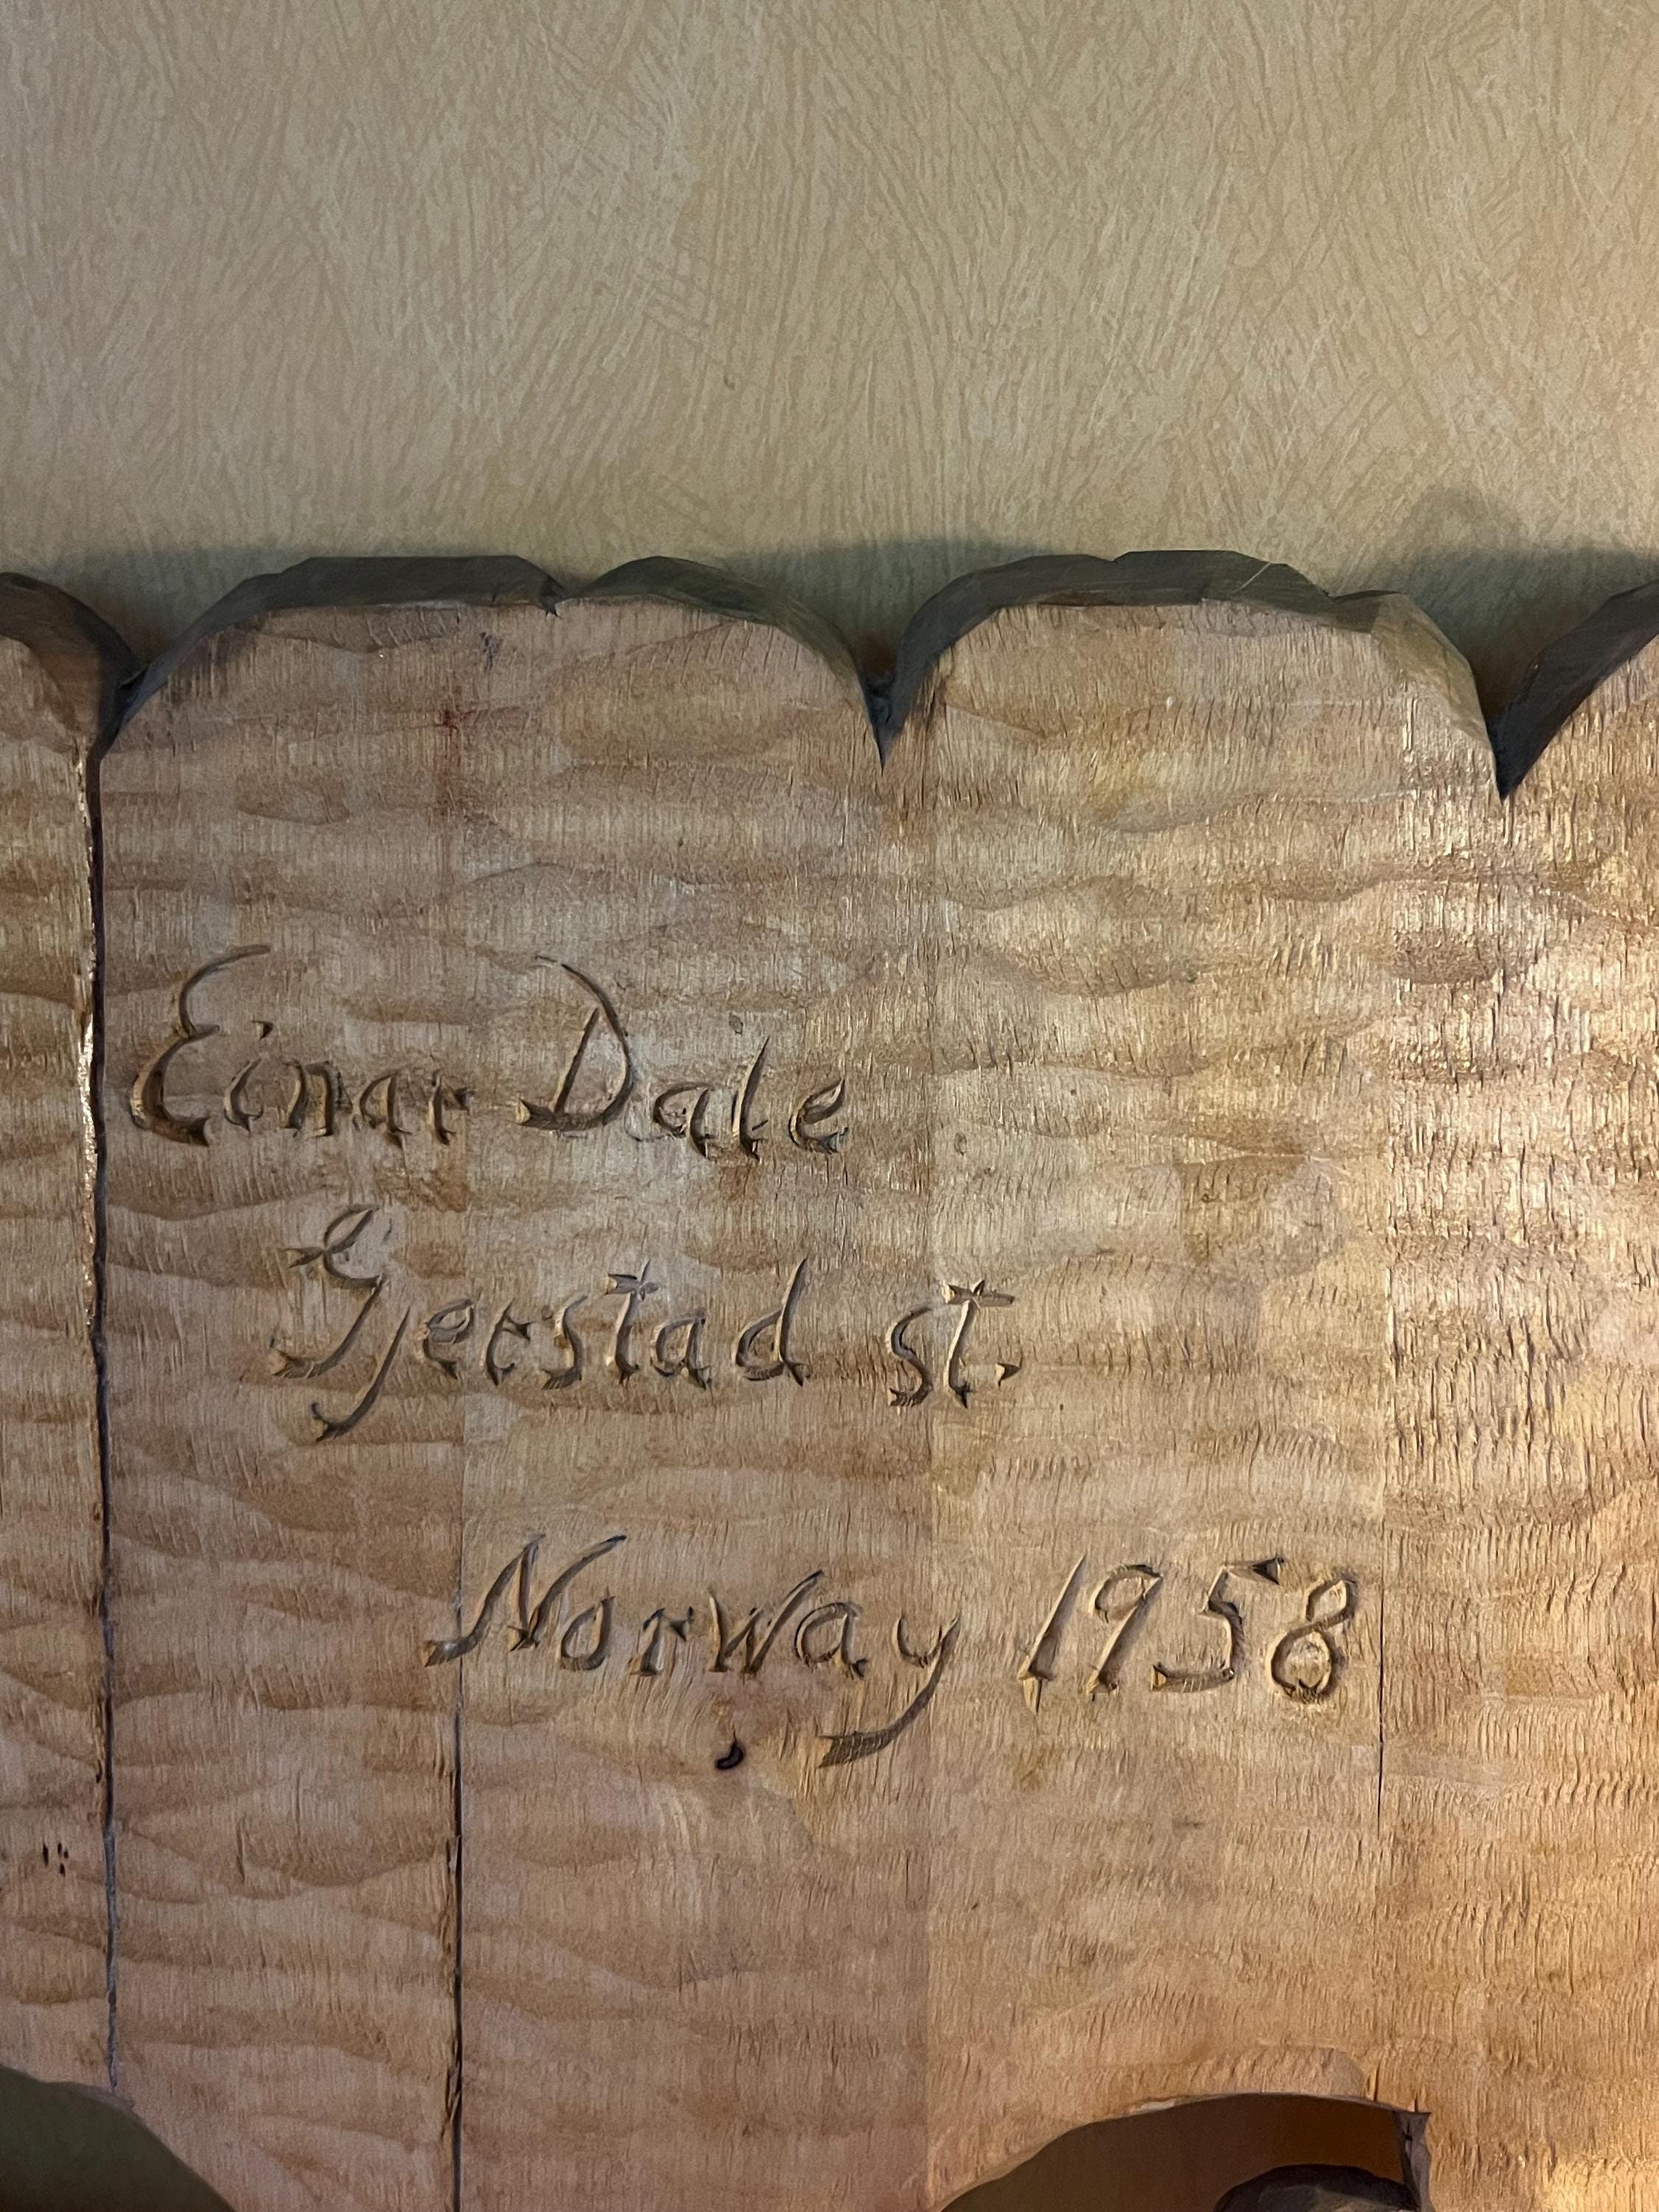 Einar Dale
Gjerstad st.
Norway 1958